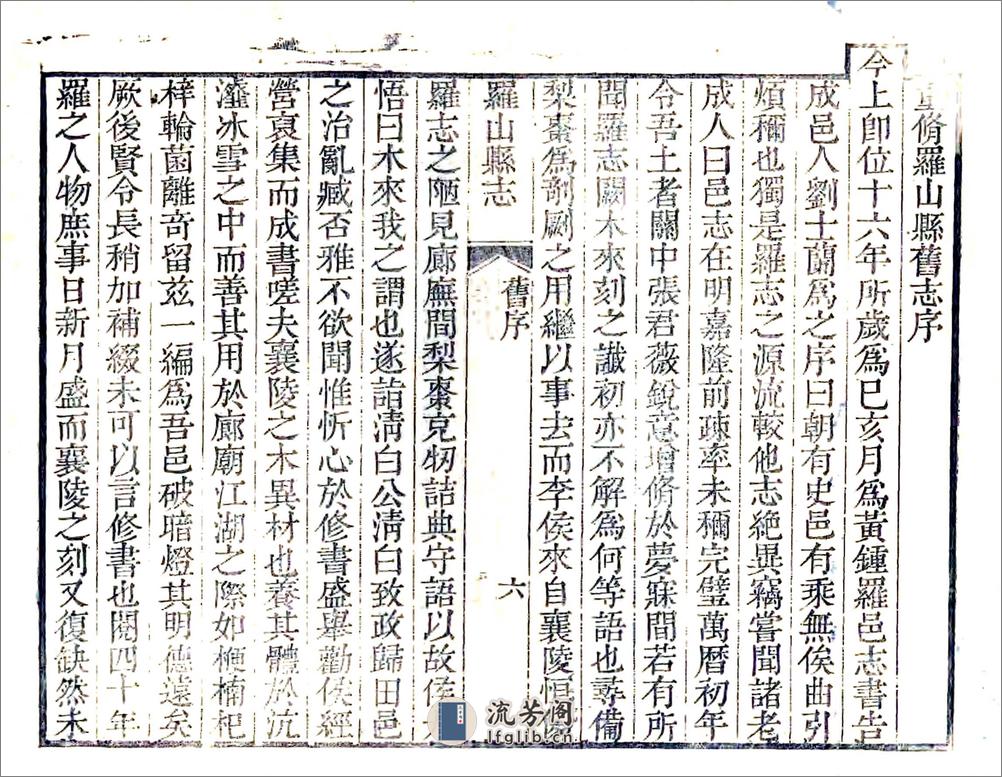 重脩羅山縣舊志序
今上卽位十六年所歲爲巳亥月爲黃鍾羅邑志書告
成邑人劉士蘭爲之序曰朝有史邑有乘無俟曲引
煩稱也獨是羅志之源流較他志絶異竊嘗聞諸老
成人曰邑志在明嘉隆前疎率未稱完璧萬曆初年
令吾土者關中張君薇銳意增脩於夢寐間若有所
聞羅志闕木來刻之讖初亦不解爲何等語也尋備
梨棗爲剞劂之用繼以事去而李侯來自襄陵恒
羅山縣志
舊序
六
羅志之陋見廊廡間梨棗充牣詰典守語以故侯
悟曰木來我之謂也遂詣淸白公淸白致政歸田邑
之治亂臧否雅不欲聞惟忻心於修書盛舉勸侯經
營裒集而成書嗟夫襄陵之木異材也養其體於沆
瀣冰雪之中而善其用於廊廟江湖之際如楩楠杞
梓輪菌離奇留玆一編爲吾邑破暗燈其明德遠矣
厥後賢令長稍加補綴未可以言修書也閱四十年
羅之人物庶事日新月盛而襄陵之刻又復缺然未
流芳阁
lfglib.cn